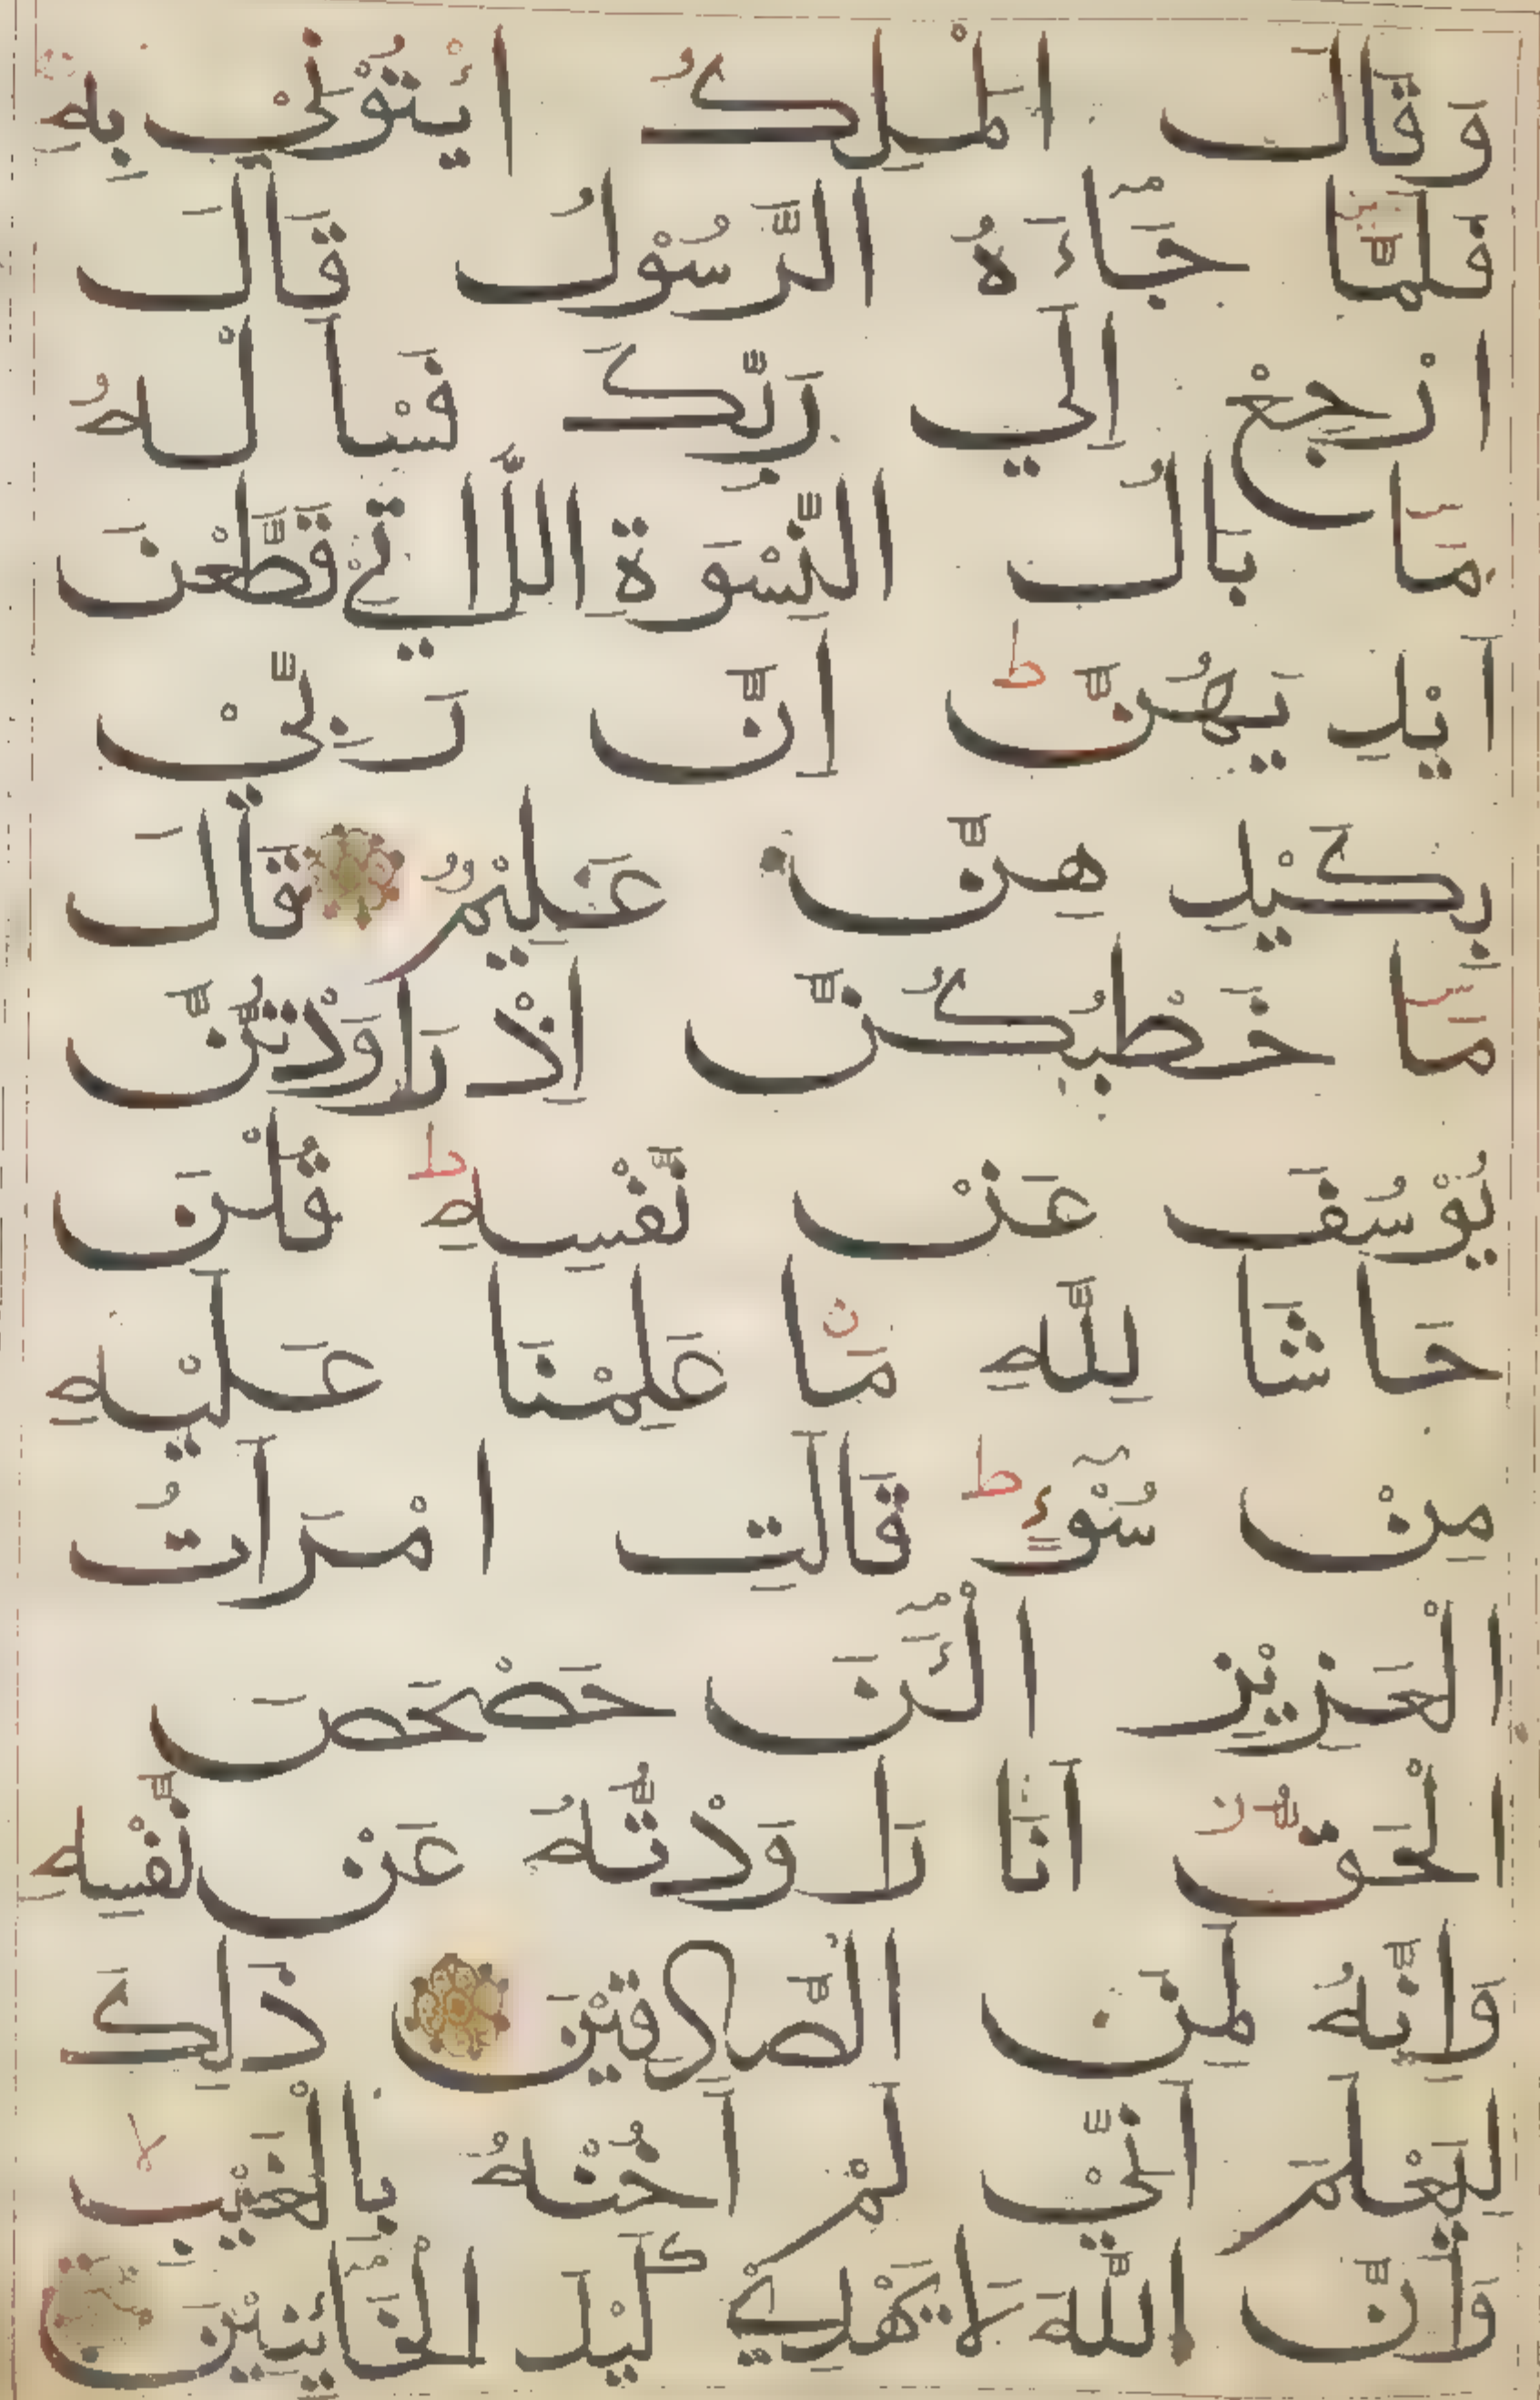 وَقَالَ الْمَلِكُ ائْيتُوْنِيْ بِهٖ
فَلَمَّا جَآءَهُ الرَّسُوْلُ قَالَ
ارْجِعْ اِلٰي رَبِّكَ فَسْاَلْهُ
مَا بَالُ النِّسْوَةِ اللَّاتِيْ قَطَّعْنَ
اَيْدِيَهُنَّ ط اِنَّ رَبِّيْ
بِكَيْدِهِنَّ عَلِيْمٌ قَالَ
مَا خَطْبُكُنَّ اِذْ رَاوَدْتُّنَّ
يُوْسُفَ عَنْ نَّفْسِهٖ ط قُلْنَ
حَاشَا لِلّٰهِ مَا عَلِمْنَا عَلَيْهِ
مِنْ سُوْٓءٍ ط قَالَتِ امْرَاَتُ
الْعَزِيْزِ الْـٰٔنَ حَصْحَصَ
الْحَقُّ ز اَنَا رَاوَدْتُّهُ عَنْ نَّفْسِهٖ
وَاِنَّهُ لَمِنَ الصَّادِقِيْنَ ذَلِكَ
لِيَعْلَمَ اَنِّيْ لَمْ اَخُنْهُ بِالْغَيْبِ لا
وَاَنَّ اللّٰهَ لَا يَهْدِيْ كَيْدَ الْخَآئِنِيْنَ